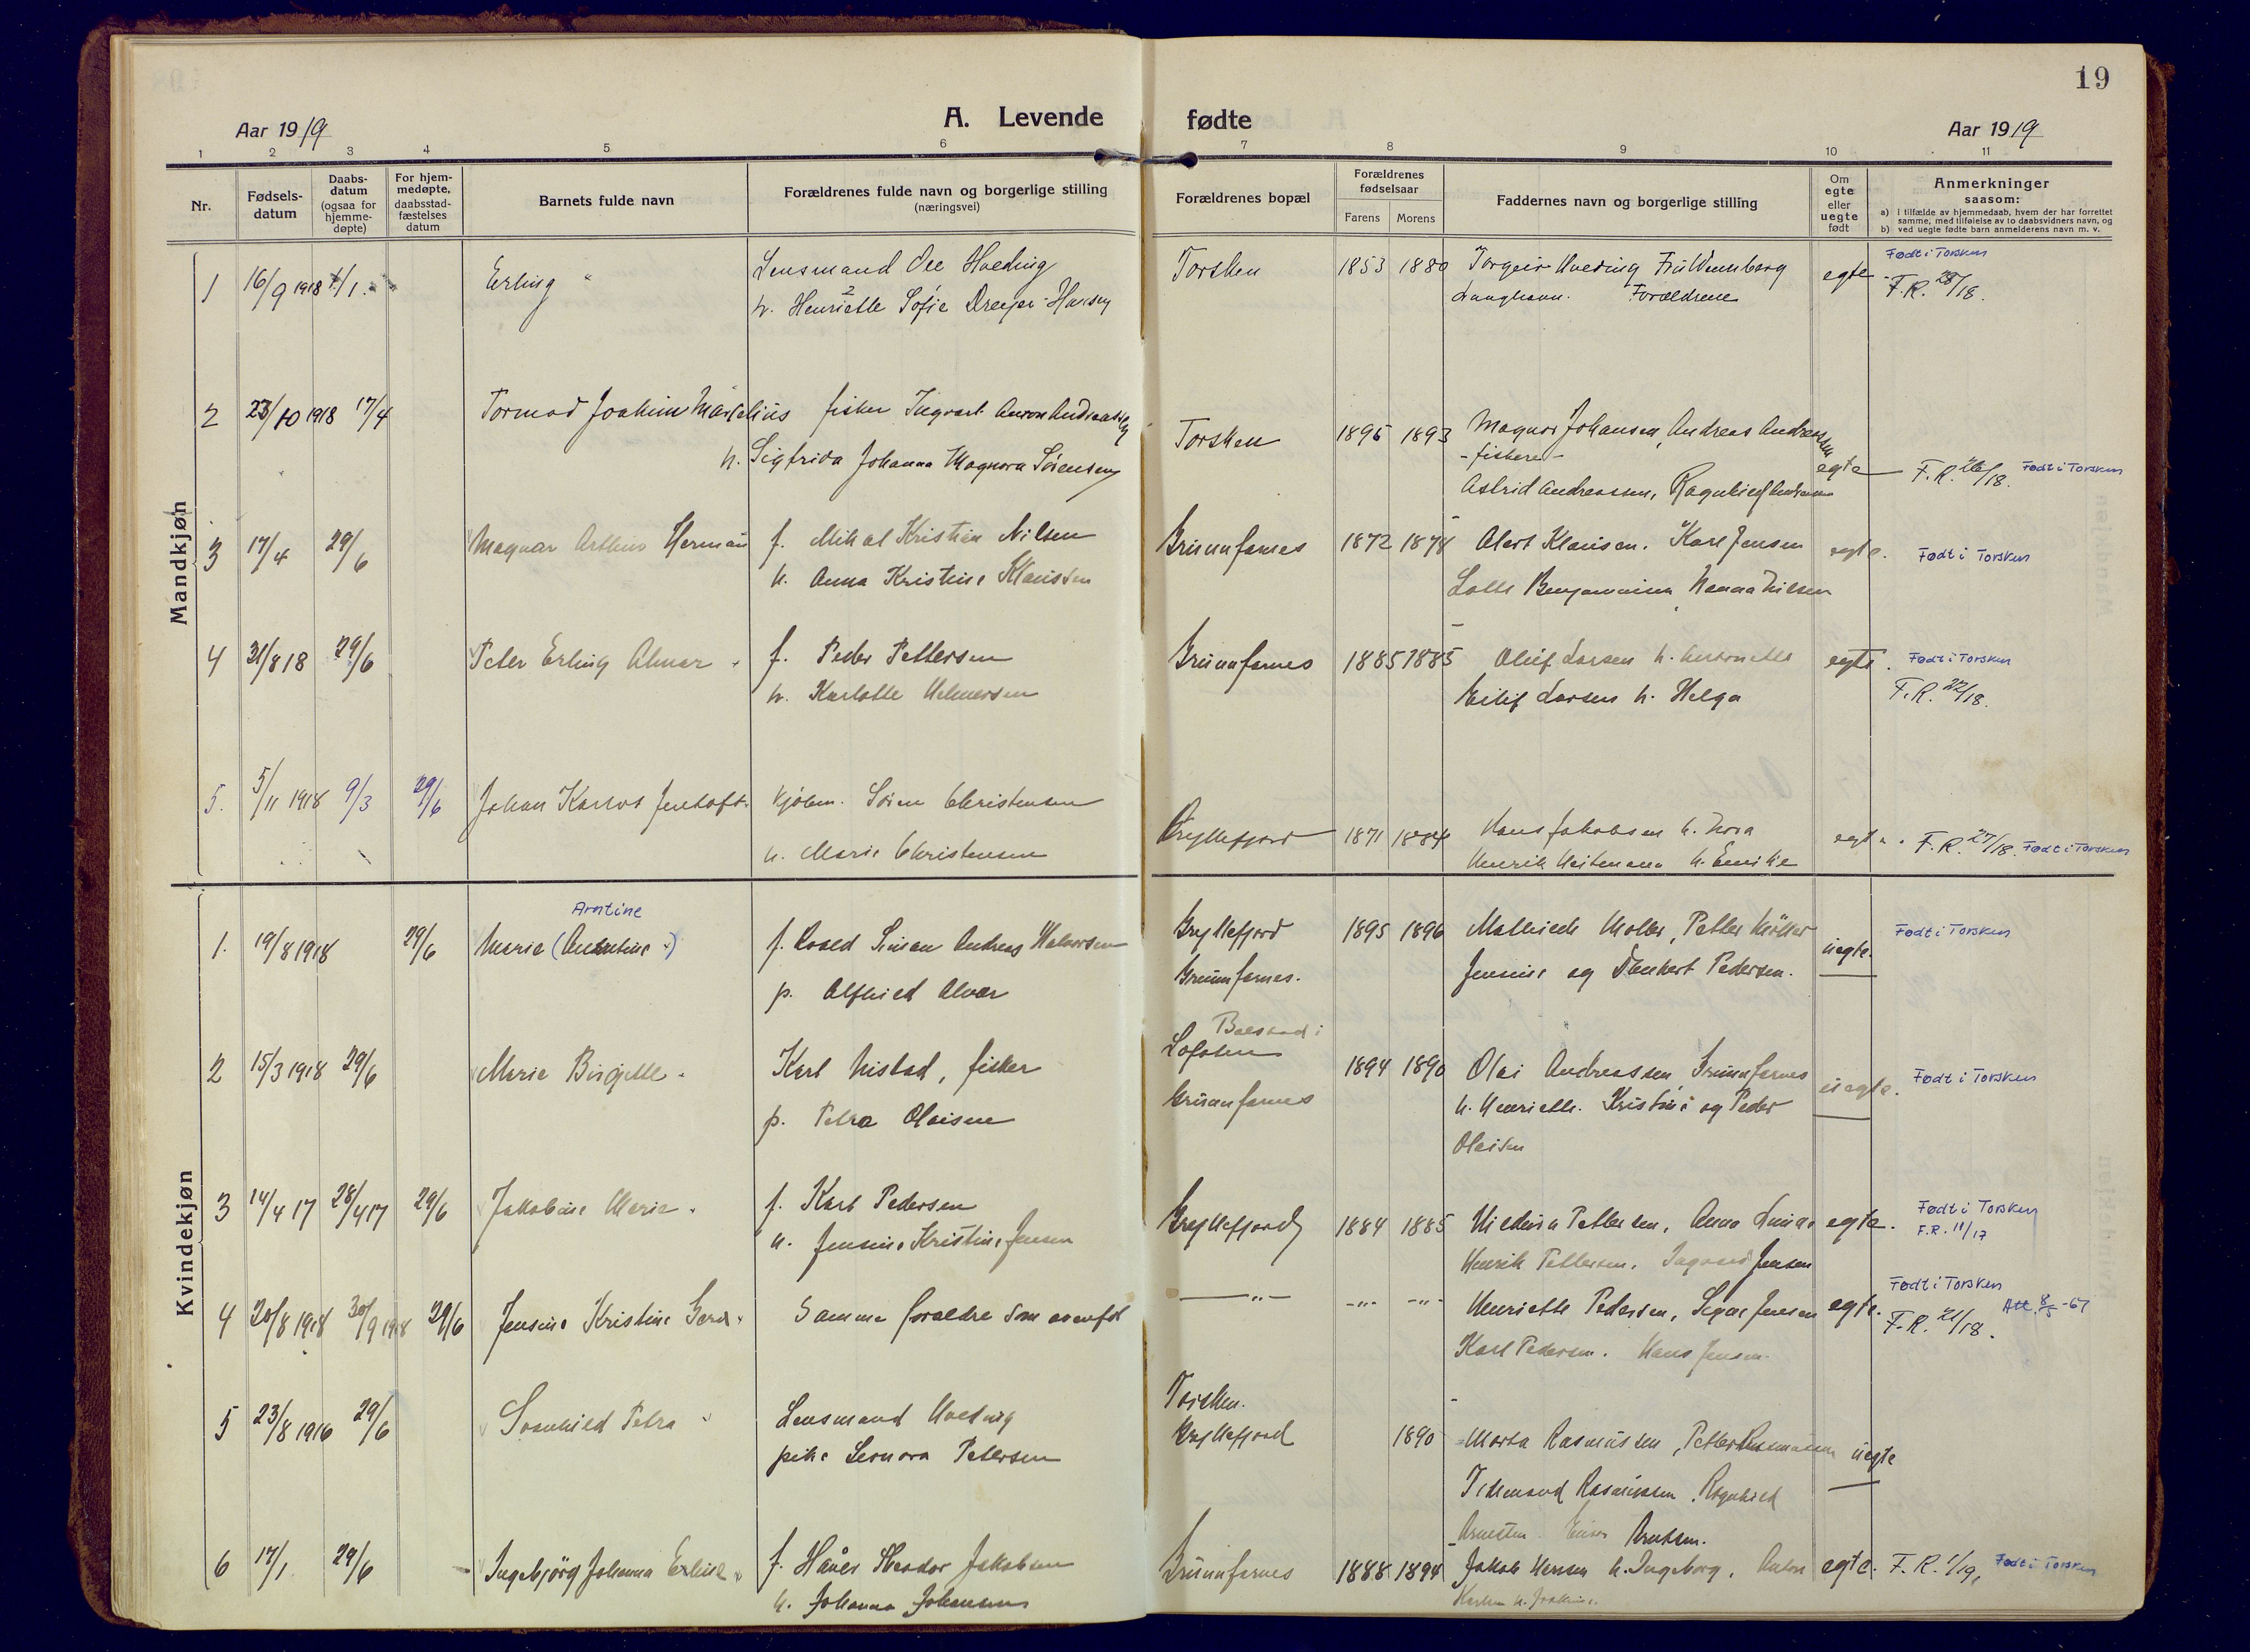 19
Aar 1919
A. Levende fødte
Aar 1919
1 2 3 4 5 6 7 8 9 10 11
Nr.
Fødsels-
datum
Daabs-
datum
(ogsaa for
hjemme-
døpte)
For hjem-
medøpte,
daabsstad-
fæstelses
datum
Barnets fulde navn
Forældrenes fulde navn og borgerlige stilling
(næringsvei)
Forældrenes bopæl
Forældrenes
fødselsaar
Farens
Morens
Faddernes navn og borgerlige stilling
Om
egte
eller
uegte
født
Anmerkninger
saasom:
a) I tilfælde av hjemmedaab, hvem der har forrettet
samme, med tilføielse av to daabsvidners navn, og
b) ved uegte fødte barn anmelderens navn m. v.
Mandkjøn
1 16/9 1918 Erling Lensmand Ole Hveding Torsken 1853 1880 Torgeir Hveding egte Født i Torsken
h. Henriette Sofie Dreyer Hansen Forældrene F.R. 28/18.
2 23/10 1918 17/4 Tormod Joakim Marselius fisker Ingvart Andreassen Torsken 1895 1893 Magnus Johansen, Andreas Andreassen
- fiskere - egte
h. Sigfrida Johanna Magnora Sørensen Astrid Andreassen, Ragnhild F.R. 26/18. Født i Torsken
3 17/4 29/6 Magnar Arthur Herman f. Mikal Kristian Nilsen Grunnfarnes 1872 1878 Klausen. Karl Jensen egte. Født i Torsken
h. Anna Kristine Klausen Nanna Nilsen
4 31/8 18 29/6 Peter Erling Almar f. Peder Pettersen Grunnfarnes 1885 1885 Oluf Larsen h. egte. Født i Torsken
h. Karlotte Helmersen Eilif Larsen h. Helga F.R. 22/18.
5. 5/11 1918 9/3 29/6 Johan Jentoft Søren Christensen Gryllefjord 1871 1884 Hans Jakobsen h. Nora egte. F.R. 27/18. Født i Torsken
h. Marie Christensen Henrik h. Emilie
Kvindekjøn
Arntine
1. 19/8 1918 29/6 Marie f. Roald Simon Andreas Halvorsen Gryllefjord 1895 1896 Petter Møller uegte. Født i Torsken
p. Alfhild Grunnfarnes. Jensine og Pedersen.
2 15/3 1918 29/6 Marie Birgitte. Karl Nistad, fisker Lofoten 1894 1890 Olai Andreassen, Grunnfarnes uegte. Født i Torsken
p. Petra Olaisen Grunnfarnes h. Henriette. Kristine og Peder
Olaisen
3 14/4 17 28/4 17 29/6 Jakobine Marie. f. Karl Pedersen Gryllefjord 1884 1885 Pettersen, Anna egte. Født i Torsken
F.R. 11/17
h. Jensine Kristine Jensen Henrik Pettersen. Jensen
4 20/8 1918 30/9 1918 29/6 Jensine Kristine Samme foreldre som ovenfor — " — -"- -"- Henriette Pedersen, Signe Jensen egte. Født i Torsken
F.R. 21/18. Att. 8/5-67
Karl Pedersen. Hans Jensen.
5 23/8 1916 29/6 Svanhild Petra Lensmand Hveding Torsken.
pike Leonora Petersen Gryllefjord 1890 Marta Rasmussen, Petter Rasmussen uegte
Tidemand Rasmussen, Ragnhild
6 17/1 29/6 Ingebjørg Johanna f. Jakobsen Grunnfarnes 1888 1894 Jakob Hansen h. Ingeborg. Anton egte. F.R. 1/19, Født i Torsken
h. Johanna Johansen